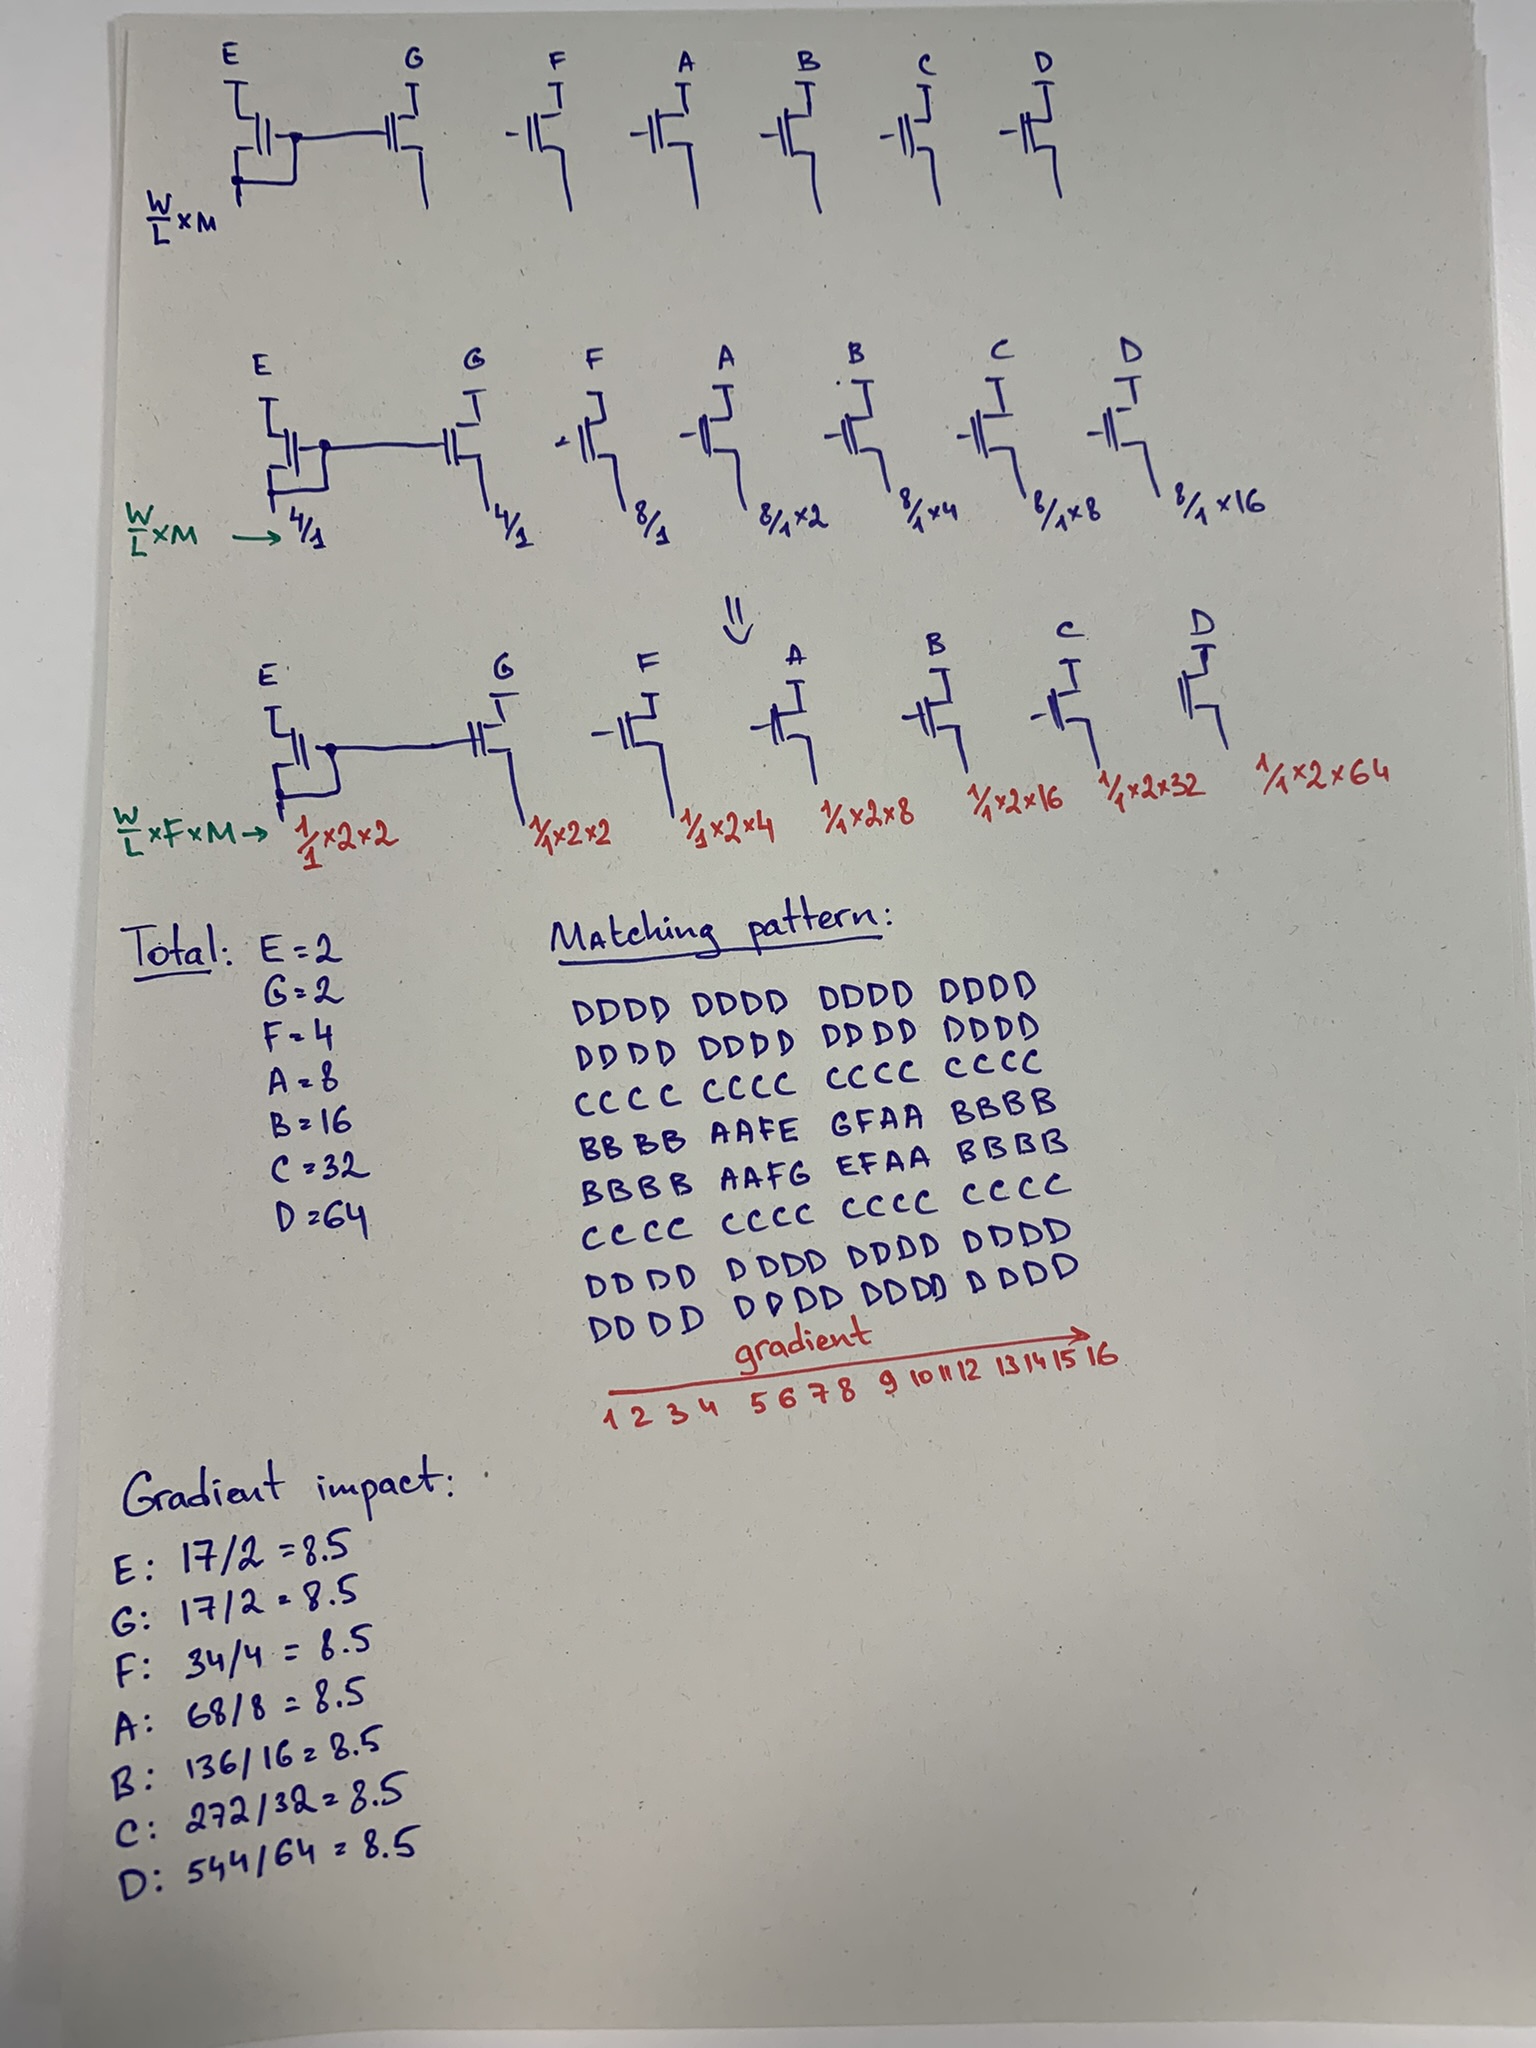 E G F A B C D
W/L × M
E G F A B C D
W/L × M → 4/1 4/1 8/1 8/1 × 2 8/1 × 4 8/1 × 8 8/1 × 16
⇓
E G F A B C D
W/L × F × M → 1/1 × 2 × 2 1/1 × 2 × 2 1/1 × 2 × 4 1/1 × 2 × 8 1/1 × 2 × 16 1/1 × 2 × 32 1/1 × 2 × 64
Total: E = 2
G = 2
F = 4
A = 8
B = 16
C = 32
D = 64
Matching pattern:
DDDD DDDD DDDD DDDD
DDDD DDDD DDDD DDDD
CCCC CCCC CCCC CCCC
BBBB AAFE GFAA BBBB
BBBB AAFG EFAA BBBB
CCCC CCCC CCCC CCCC
DDDD DDDD DDDD DDDD
DDDD DDDD DDDD DDDD
gradient
1 2 3 4 5 6 7 8 9 10 11 12 13 14 15 16
Gradient impact:
E: 17/2 = 8.5
G: 17/2 = 8.5
F: 34/4 = 8.5
A: 68/8 = 8.5
B: 136/16 = 8.5
C: 272/32 = 8.5
D: 544/64 = 8.5